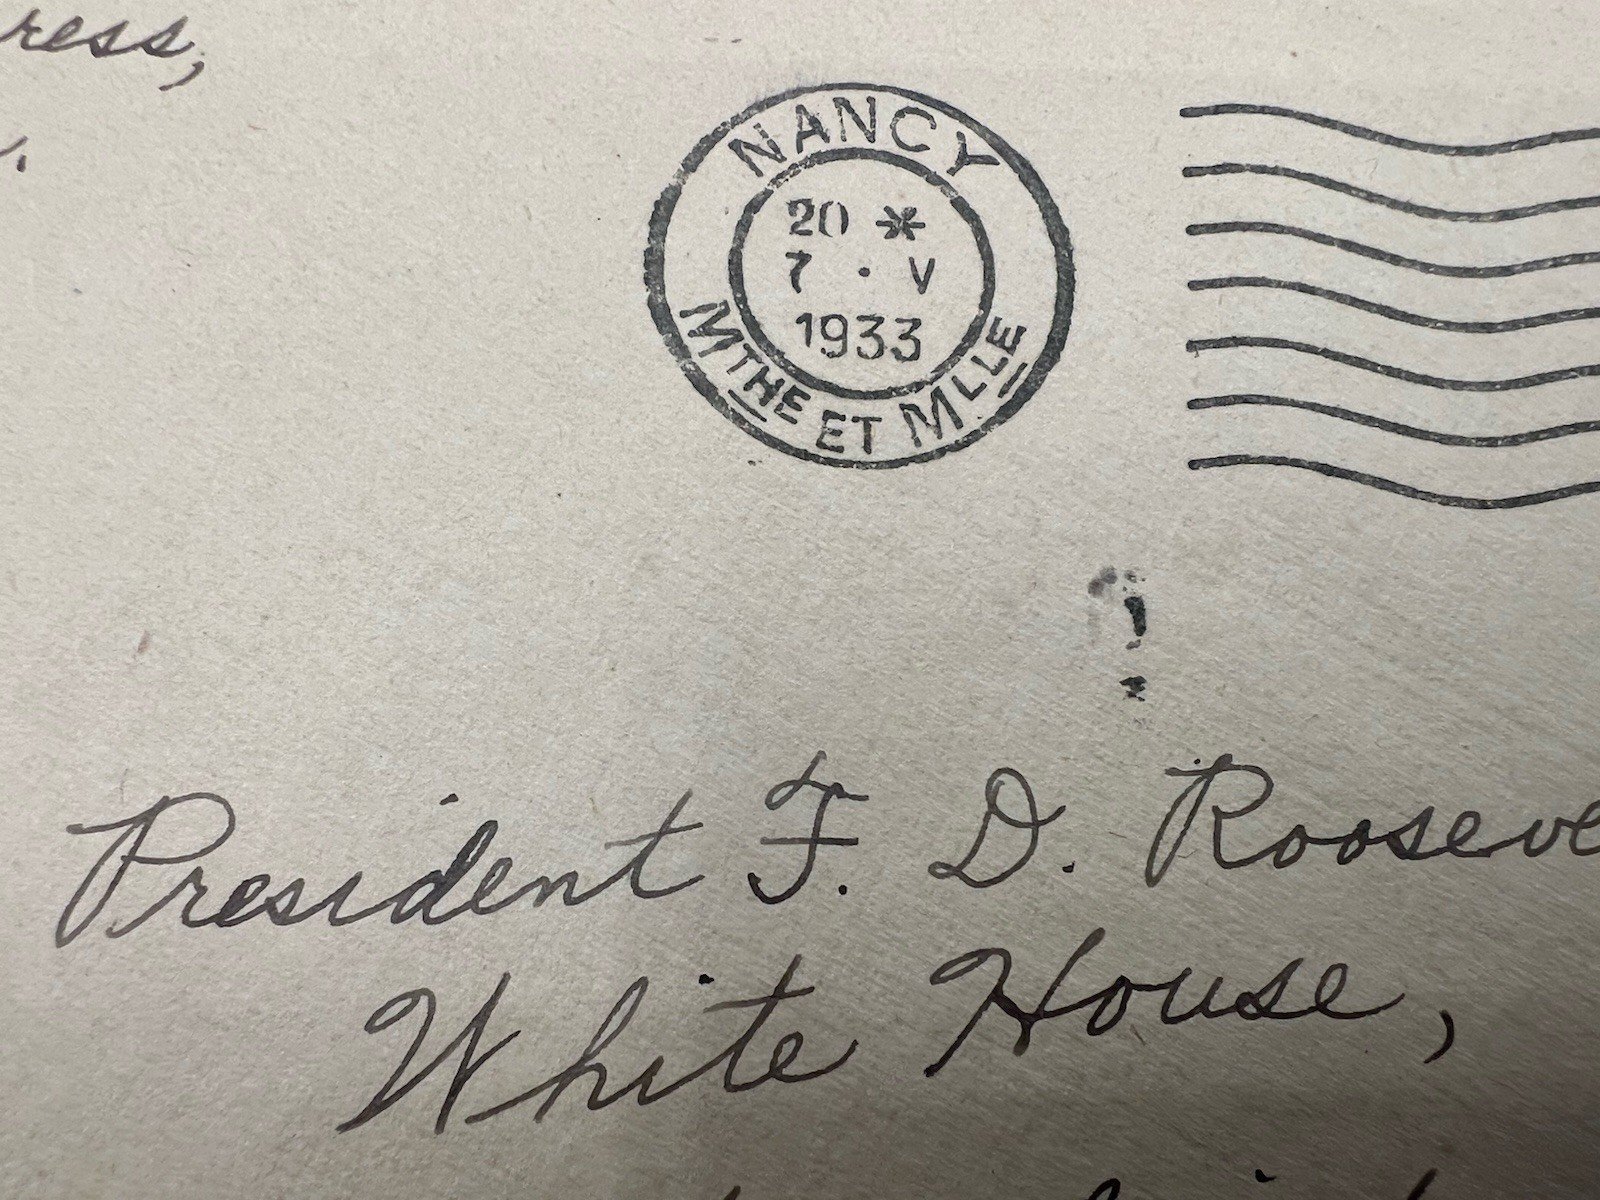 NANCY
20 *
7 · V
1933
MTHE ET MLLE
President F. D. Rooseve
White House,